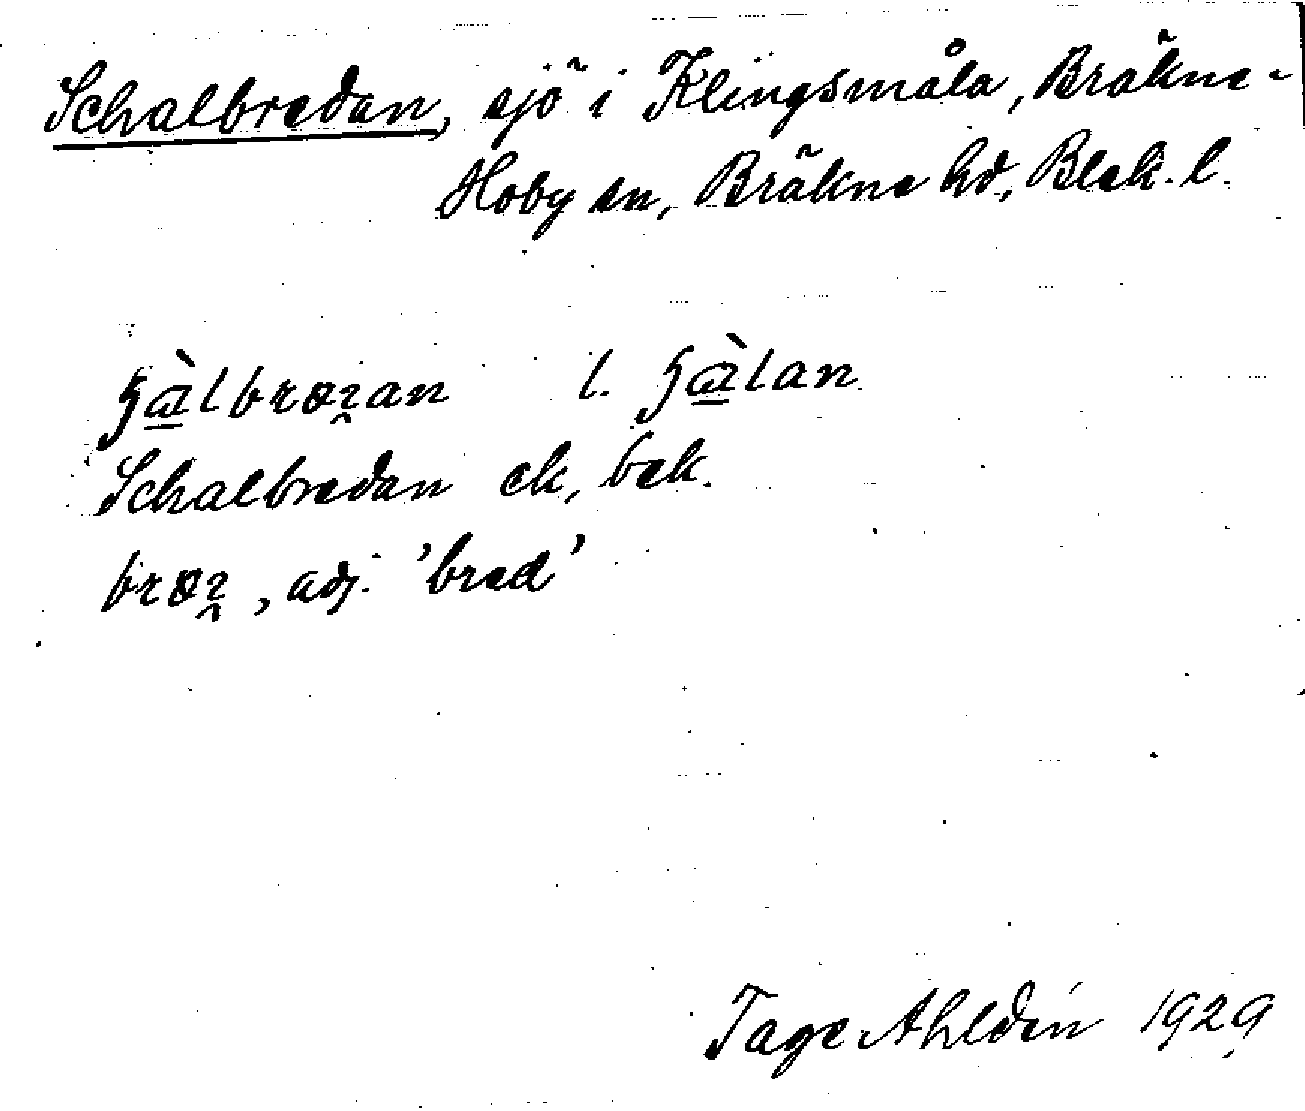 Schalbredan, sjö i Klingsmåla, Bräkne-
Hoby sn, Bräkne hd, Blek. l.
l.
Schalbredan ek, bek.
, adj. 'bred'
Tage Ahldén 1929